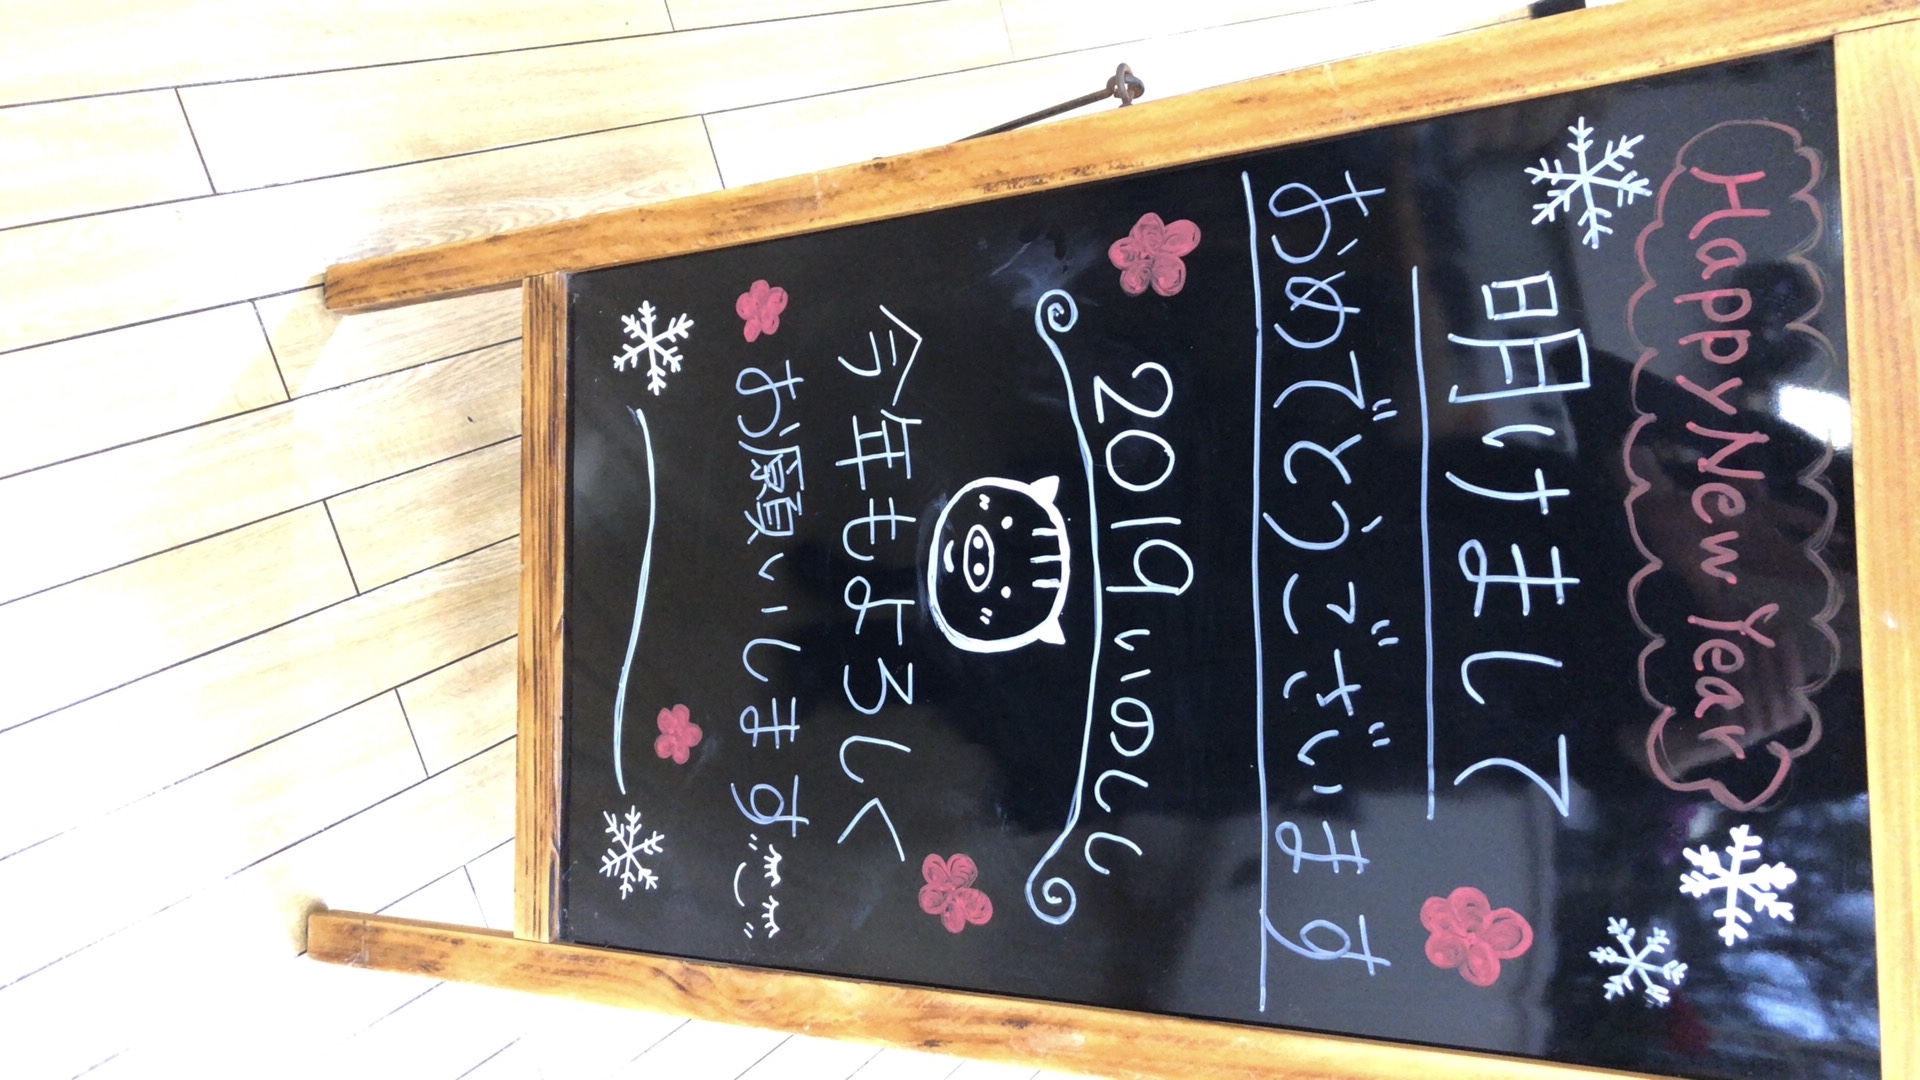 Happy New Year
明けまして
おめでとうございます
2019 いのしし
今年もよろしく
お願いします